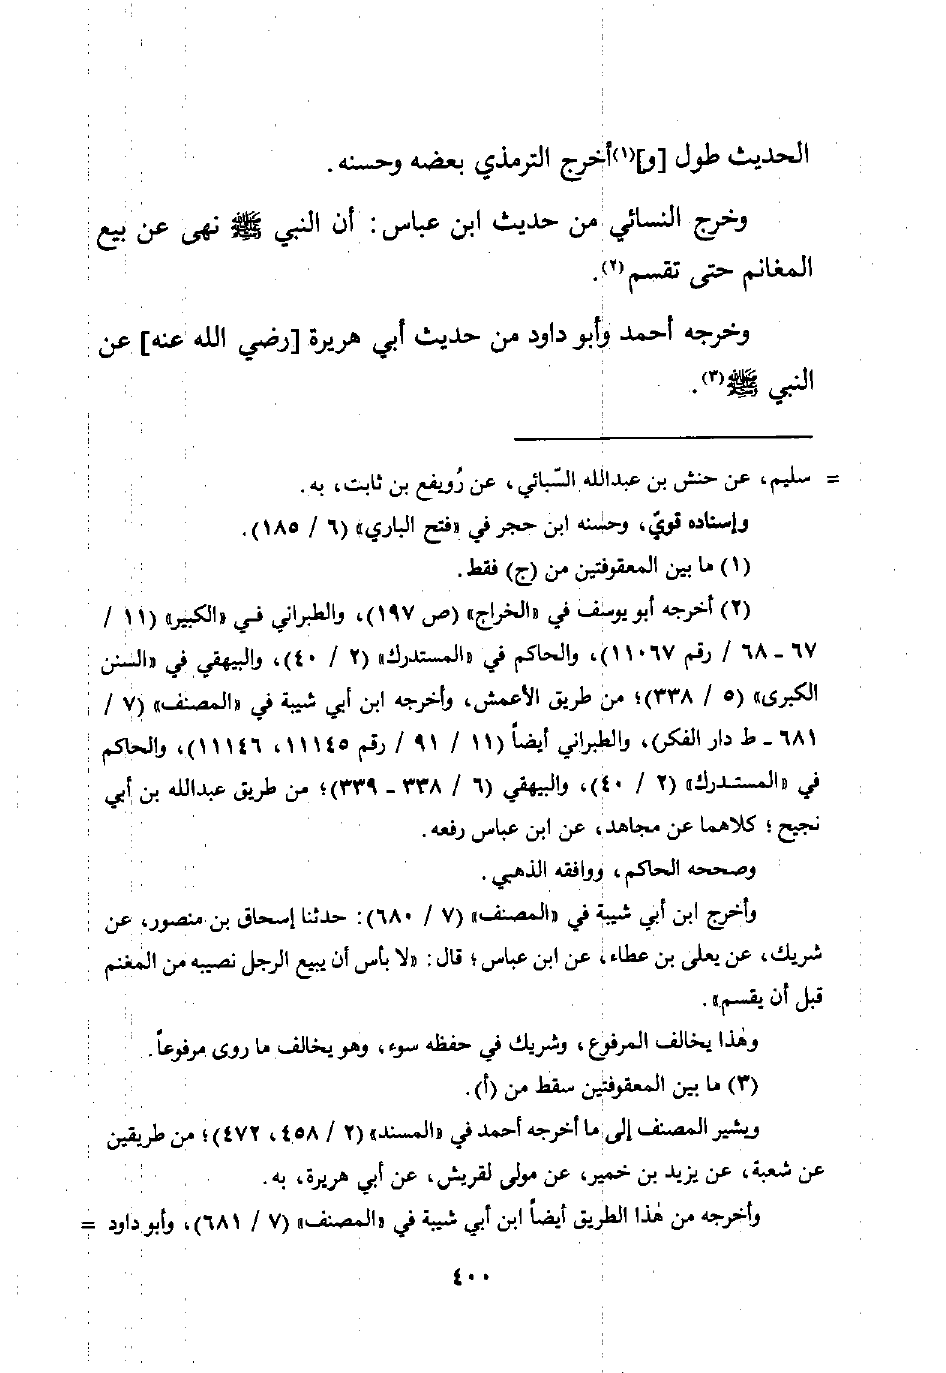 الحديث طول [و](١)أخرج الترمذي بعضه وحسنه.
وخرج النسائي من حديث ابن عباس: أن النبي ﷺ نهى عن بيع
المغانم حتى تقسم(٢).
وخرجه أحمد وأبو داود من حديث أبي هريرة [رضي الله عنه] عن
النبي ﷺ(٣).
= سليم، عن حنش بن عبدالله السّبائي، عن رُويفع بن ثابت، به.
وإسناده قويّ، وحسنه ابن حجر في «فتح الباري» (٦ / ١٨٥).
(١) ما بين المعقوفتين من (ج) فقط.
(٢) أخرجه أبو يوسف في «الخراج» (ص ١٩٧)، والطبراني في «الكبير» (١١ /
٦٧ ـ ٦٨ / رقم ١١٠٦٧)، والحاكم في «المستدرك» (٢ / ٤٠)، والبيهقي في «السنن
الكبرى» (٥ / ٣٣٨)؛ من طريق الأعمش، وأخرجه ابن أبي شيبة في «المصنف» (٧ /
٦٨١ ـ ط دار الفكر)، والطبراني أيضاً (١١ / ٩١ / رقم ١١١٤٥، ١١١٤٦)، والحاكم
في «المستدرك» (٢ / ٤٠)، والبيهقي (٦ / ٣٣٨ ـ ٣٣٩)؛ من طريق عبدالله بن أبي
نجيح؛ كلاهما عن مجاهد، عن ابن عباس رفعه.
وصححه الحاكم، ووافقه الذهبي.
وأخرج ابن أبي شيبة في «المصنف» (٧ / ٦٨٠): حدثنا إسحاق بن منصور، عن
شريك، عن يعلى بن عطاء، عن ابن عباس؛ قال: «لا بأس أن يبيع الرجل نصيبه من المغنم
قبل أن يقسم».
وهٰذا يخالف المرفوع، وشريك في حفظه سوء، وهو يخالف ما روى مرفوعاً.
(٣) ما بين المعقوفتين سقط من (أ).
ويشير المصنف إلى ما أخرجه أحمد في «المسند» (٢ / ٤٥٨، ٤٧٢)؛ من طريقين
عن شعبة، عن يزيد بن خمير، عن مولى لقريش، عن أبي هريرة، به.
وأخرجه من هٰذا الطريق أيضاً ابن أبي شيبة في «المصنف» (٧ / ٦٨١)، وأبو داود =
٤٠٠